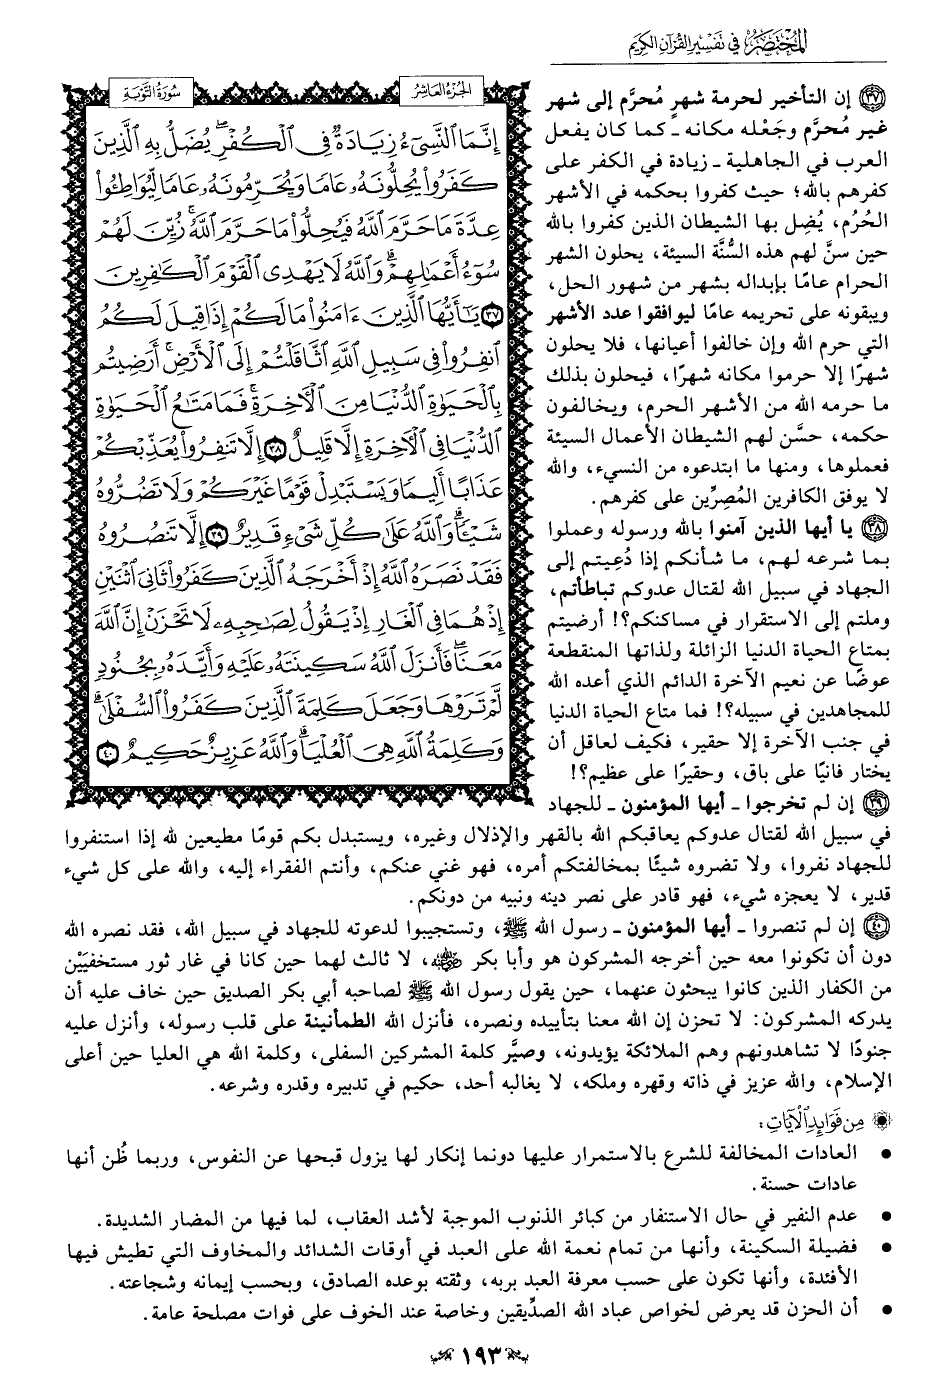 المختصر في تفسير القرآن الكريم
الجزء العاشر
سورة التوبة
إِنَّمَا ٱلنَّسِيٓءُ زِيَادَةٌ فِي ٱلْكُفْرِۖ يُضَلُّ بِهِ ٱلَّذِينَ
كَفَرُواْ يُحِلُّونَهُۥ عَامًا وَيُحَرِّمُونَهُۥ عَامًا لِّيُوَاطِـُٔواْ
عِدَّةَ مَا حَرَّمَ ٱللَّهُ فَيُحِلُّواْ مَا حَرَّمَ ٱللَّهُۚ زُيِّنَ لَهُمْ
سُوٓءُ أَعْمَٰلِهِمْۗ وَٱللَّهُ لَا يَهْدِي ٱلْقَوْمَ ٱلْكَٰفِرِينَ
٣٧ يَٰٓأَيُّهَا ٱلَّذِينَ ءَامَنُواْ مَا لَكُمْ إِذَا قِيلَ لَكُمُ
ٱنفِرُواْ فِي سَبِيلِ ٱللَّهِ ٱثَّاقَلْتُمْ إِلَى ٱلْأَرْضِۚ أَرَضِيتُم
بِٱلْحَيَوٰةِ ٱلدُّنْيَا مِنَ ٱلْأٓخِرَةِۚ فَمَا مَتَٰعُ ٱلْحَيَوٰةِ
ٱلدُّنْيَا فِي ٱلْأٓخِرَةِ إِلَّا قَلِيلٌ ٣٨ إِلَّا تَنفِرُواْ يُعَذِّبْكُمْ
عَذَابًا أَلِيمًا وَيَسْتَبْدِلْ قَوْمًا غَيْرَكُمْ وَلَا تَضُرُّوهُ
شَيْـًٔاۗ وَٱللَّهُ عَلَىٰ كُلِّ شَيْءٍ قَدِيرٌ ٣٩ إِلَّا تَنصُرُوهُ
فَقَدْ نَصَرَهُ ٱللَّهُ إِذْ أَخْرَجَهُ ٱلَّذِينَ كَفَرُواْ ثَانِيَ ٱثْنَيْنِ
إِذْ هُمَا فِي ٱلْغَارِ إِذْ يَقُولُ لِصَٰحِبِهِۦ لَا تَحْزَنْ إِنَّ ٱللَّهَ
مَعَنَاۖ فَأَنزَلَ ٱللَّهُ سَكِينَتَهُۥ عَلَيْهِ وَأَيَّدَهُۥ بِجُنُودٍ
لَّمْ تَرَوْهَا وَجَعَلَ كَلِمَةَ ٱلَّذِينَ كَفَرُواْ ٱلسُّفْلَىٰۗ
وَكَلِمَةُ ٱللَّهِ هِيَ ٱلْعُلْيَاۗ وَٱللَّهُ عَزِيزٌ حَكِيمٌ ٤٠
٣٧ إن التأخير لحرمة شهرٍ مُحرَّم إلى شهر
غير مُحرَّم وجَعْله مكانه ـ كما كان يفعل
العرب في الجاهلية ـ زيادة في الكفر على
كفرهم بالله؛ حيث كفروا بحكمه في الأشهر
الحُرُم، يُضِل بها الشيطان الذين كفروا بالله
حين سنَّ لهم هذه السُّنَّة السيئة، يحلون الشهر
الحرام عامًا بإبداله بشهر من شهور الحل،
ويبقونه على تحريمه عامًا ليوافقوا عدد الأشهر
التي حرم الله وإن خالفوا أعيانها، فلا يحلون
شهرًا إلا حرموا مكانه شهرًا، فيحلون بذلك
ما حرمه الله من الأشهر الحرم، ويخالفون
حكمه، حسَّن لهم الشيطان الأعمال السيئة
فعملوها، ومنها ما ابتدعوه من النسيء، والله
لا يوفق الكافرين المُصِرِّين على كفرهم.
٣٨ يا أيها الذين آمنوا بالله ورسوله وعملوا
بما شرعه لهم، ما شأنكم إذا دُعِيتم إلى
الجهاد في سبيل الله لقتال عدوكم تباطأتم،
وملتم إلى الاستقرار في مساكنكم؟! أرضيتم
بمتاع الحياة الدنيا الزائلة ولذاتها المنقطعة
عوضًا عن نعيم الآخرة الدائم الذي أعده الله
للمجاهدين في سبيله؟! فما متاع الحياة الدنيا
في جنب الآخرة إلا حقير، فكيف لعاقل أن
يختار فانيًا على باق، وحقيرًا على عظيم؟!
٣٩ إن لم تخرجوا ـ أيها المؤمنون ـ للجهاد
في سبيل الله لقتال عدوكم يعاقبكم الله بالقهر والإذلال وغيره، ويستبدل بكم قومًا مطيعين لله إذا استنفروا
للجهاد نفروا، ولا تضروه شيئًا بمخالفتكم أمره، فهو غني عنكم، وأنتم الفقراء إليه، والله على كل شيء
قدير، لا يعجزه شيء، فهو قادر على نصر دينه ونبيه من دونكم.
٤٠ إن لم تنصروا ـ أيها المؤمنون ـ رسول الله ﷺ، وتستجيبوا لدعوته للجهاد في سبيل الله، فقد نصره الله
دون أن تكونوا معه حين أخرجه المشركون هو وأبا بكر رضي الله عنه، لا ثالث لهما حين كانا في غار ثور مستخفيَيْن
من الكفار الذين كانوا يبحثون عنهما، حين يقول رسول الله ﷺ لصاحبه أبي بكر الصديق حين خاف عليه أن
يدركه المشركون: لا تحزن إن الله معنا بتأييده ونصره، فأنزل الله الطمأنينة على قلب رسوله، وأنزل عليه
جنودًا لا تشاهدونهم وهم الملائكة يؤيدونه، وصيَّر كلمة المشركين السفلى، وكلمة الله هي العليا حين أعلى
الإسلام، والله عزيز في ذاته وقهره وملكه، لا يغالبه أحد، حكيم في تدبيره وقدره وشرعه.
من فوائد الآيات:
• العادات المخالفة للشرع بالاستمرار عليها دونما إنكار لها يزول قبحها عن النفوس، وربما ظُن أنها
عادات حسنة.
• عدم النفير في حال الاستنفار من كبائر الذنوب الموجبة لأشد العقاب، لما فيها من المضار الشديدة.
• فضيلة السكينة، وأنها من تمام نعمة الله على العبد في أوقات الشدائد والمخاوف التي تطيش فيها
الأفئدة، وأنها تكون على حسب معرفة العبد بربه، وثقته بوعده الصادق، وبحسب إيمانه وشجاعته.
• أن الحزن قد يعرض لخواص عباد الله الصدِّيقين وخاصة عند الخوف على فوات مصلحة عامة.
١٩٣